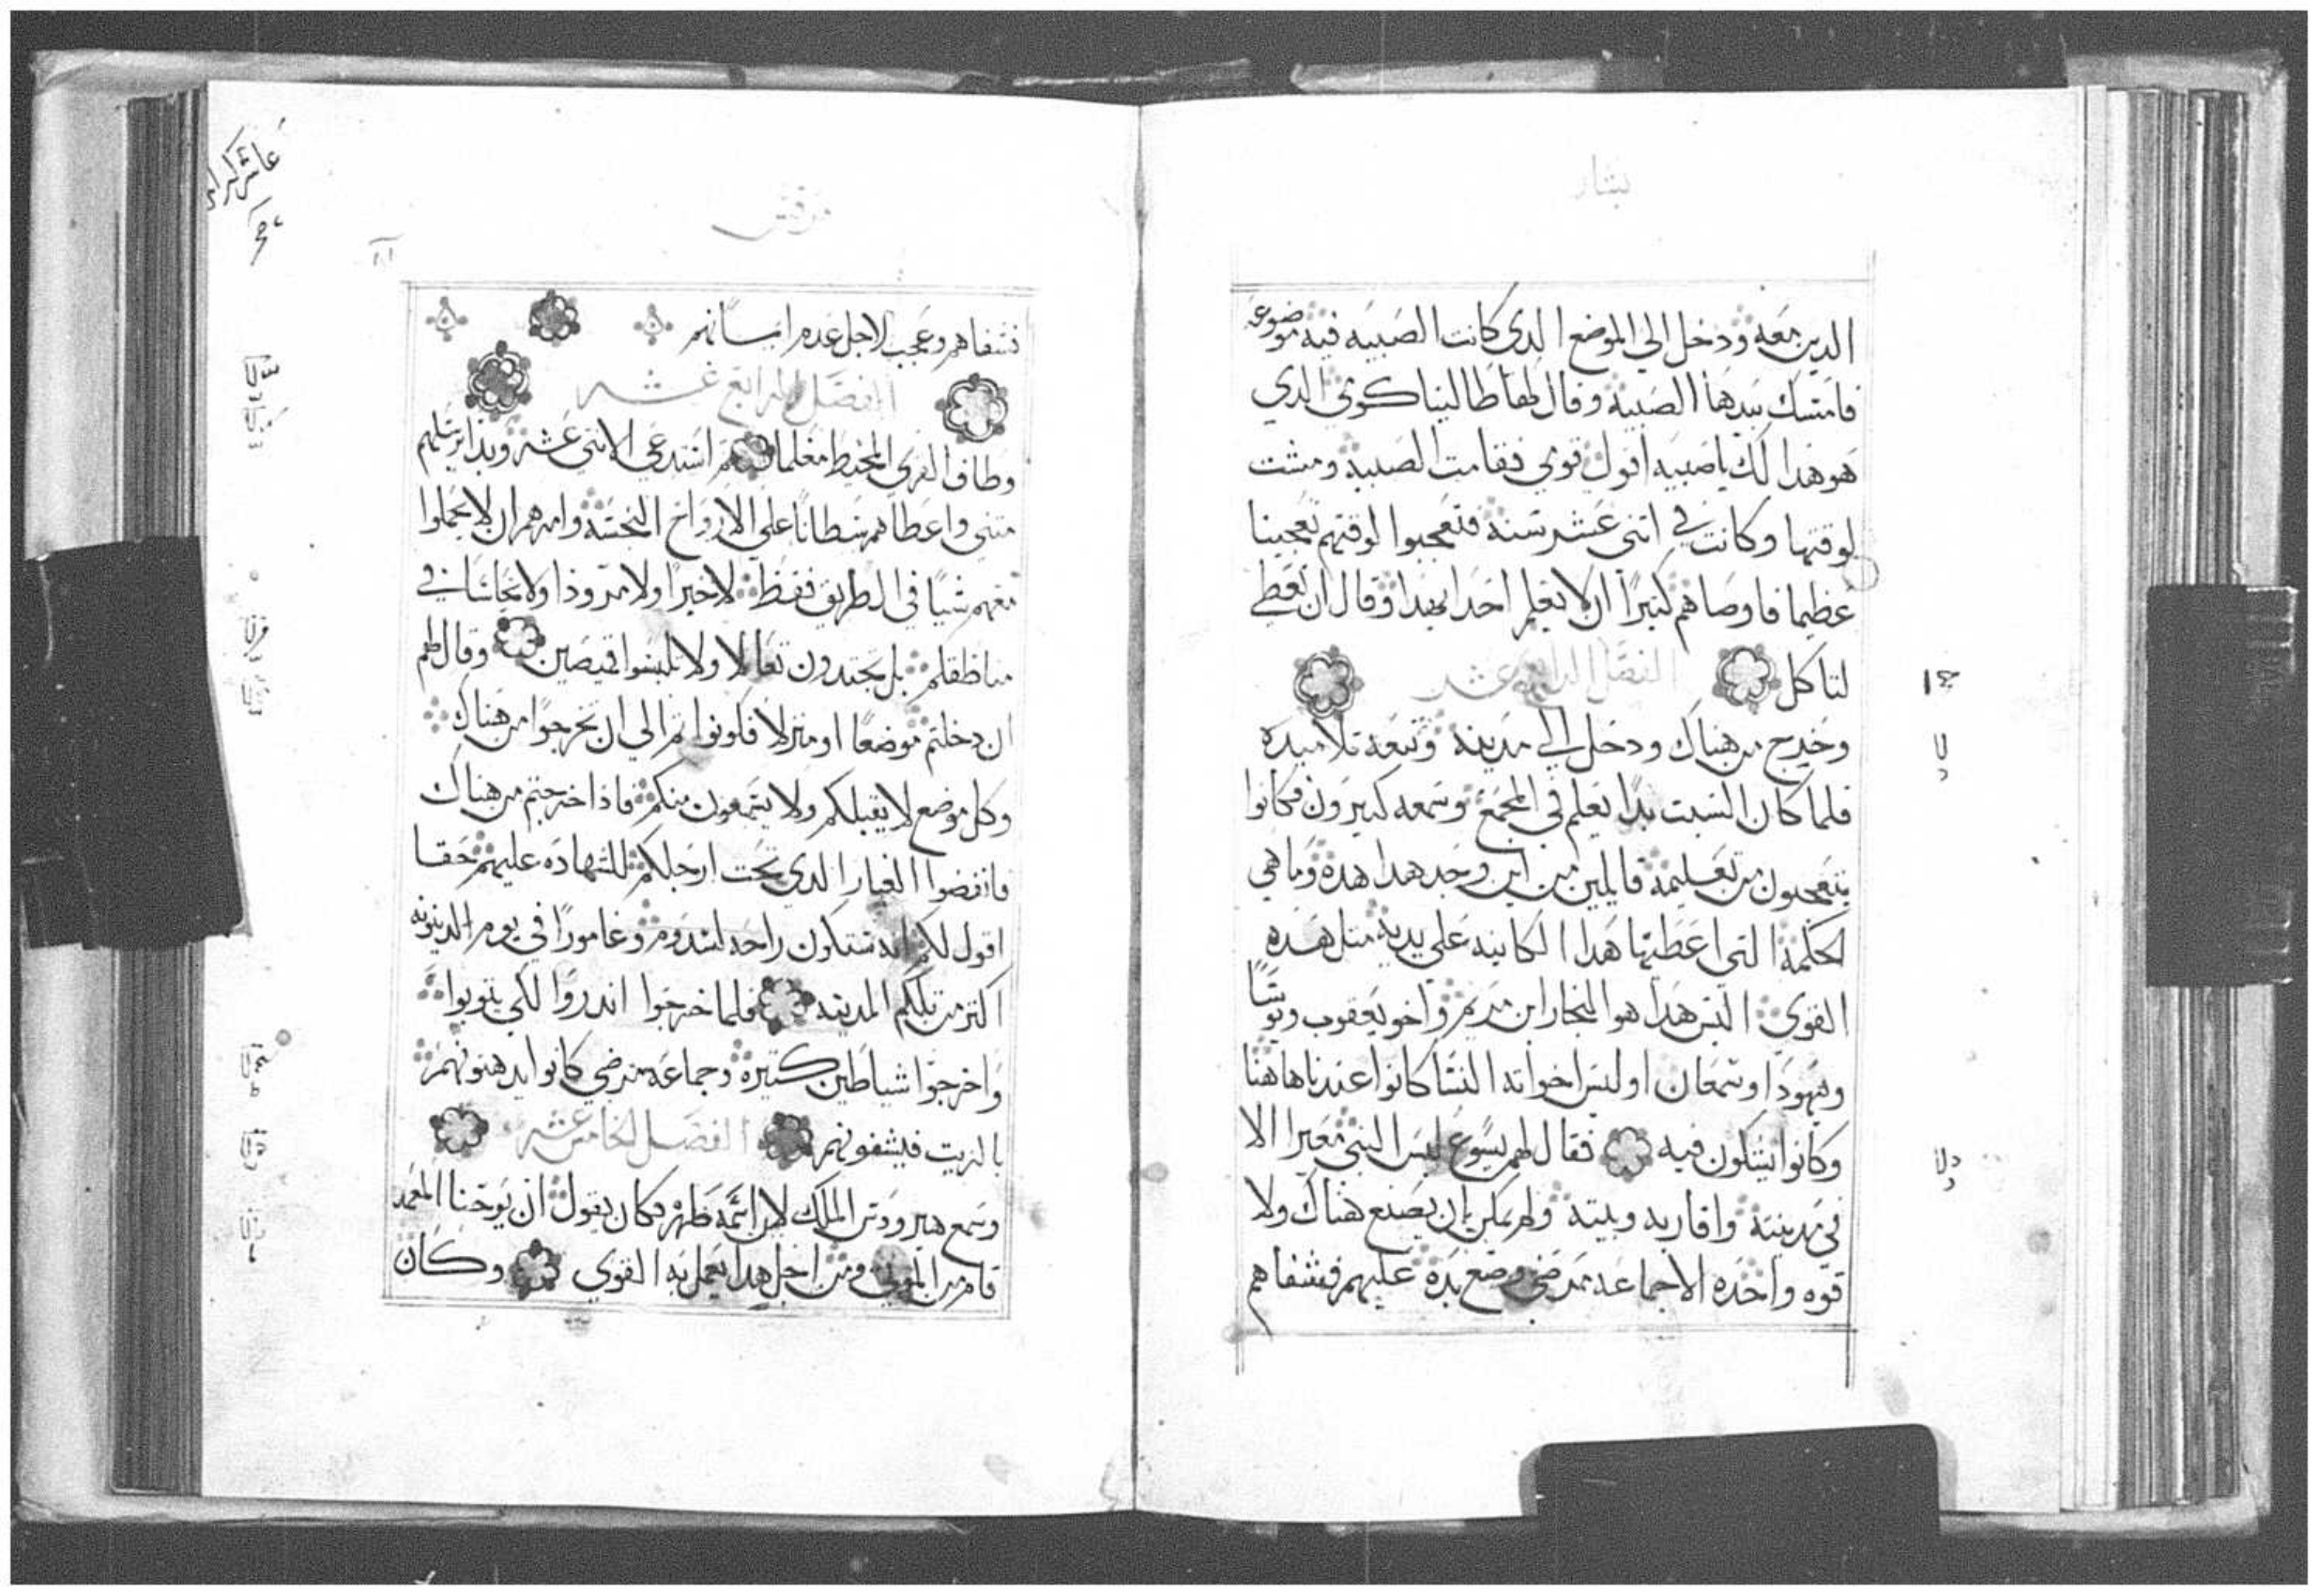 بشار
الدين معه ودخل الي الموضع الدي كانت الصبيه فيه موضوعه
فامسك بيدها الصبيه وقال لها طاليتا كوي الدي
هو هدا لك يا صبيه اقول قومي فقامت الصبيه ومشت
لوقتها وكانت في اتني عشر سنه فتعجبوا لوقتهم تعجبنا
عظيما فاوصاهم كتيرا ان لا يعلم احدا بهدا وقال ان تعطي
لتاكل الفصل الرابع عشر
وخرج من هناك ودخل الي مدينه وتبعه تلاميده
فلما كان السبت بدا يعلم في المجمع وسمعه كتيرون فكانوا
يتعجبون من تعليمه قايلين من اين وجد هدا هده وما هي
الحكمه التي اعطيها هدا الكاينه علي يديه متل هده
القوي اليس هدا هو النجار ابن مريم واخو يعقوب ويوسا
ويهودا وسمعان اوليس اخواته النسا كانوا عندنا هاهنا
وكانوا يشكون فيه فقال لهم يسوع ليس النبي معيرا الا
في مدينته واقاربه وبيته ولم يمكن بان يصنع هناك ولا
قوه واحده الا جماعه مرضي وضع يده عليهم فشفاهم
مرقس
فشفاهم وعجب لاجل عدم ايمانهم
الفصل الرابع عشر
وطاف القري المحيط معلما تم استدعي الاتني عشر وبدا يرسلهم
متني واعطاهم سطانا علي الارواح النجسه وامرهم ان لا يحملوا
معهم شيا في الطريق فقط لا خبزا ولا مزودا ولا نحاسا في
مناطقكم بل يحتدون نعالا ولا تلبسوا قميصين وقال لهم
ان دخلتم موضعا او منزلا فكونوا تم الي ان تخرجوا من هناك
وكل موضع لا يقبلكم ولا يسمعون منكم فاذا خرجتم من هناك
فانفضوا الغبار الدي تحت ارجلكم للشهاده عليهم حقا
اقول لكم انه ستكون راحه لسدوم وغامورا في يوم الدينونه
اكتر من تلكم المدينه فلما خرجوا اندروا لكي يتوبوا
واخرجوا شياطين كتيره وجماعه مرضي كانوا يدهنونهم
بالزيت فيشفونهم الفصل الخامس عشر
وسمع هيرودس الملك لان اسمه ظهر فكان يقول ان يوحنا المعمد
قام من الموتي ومن اجل هدا يعمل به القوي وكان